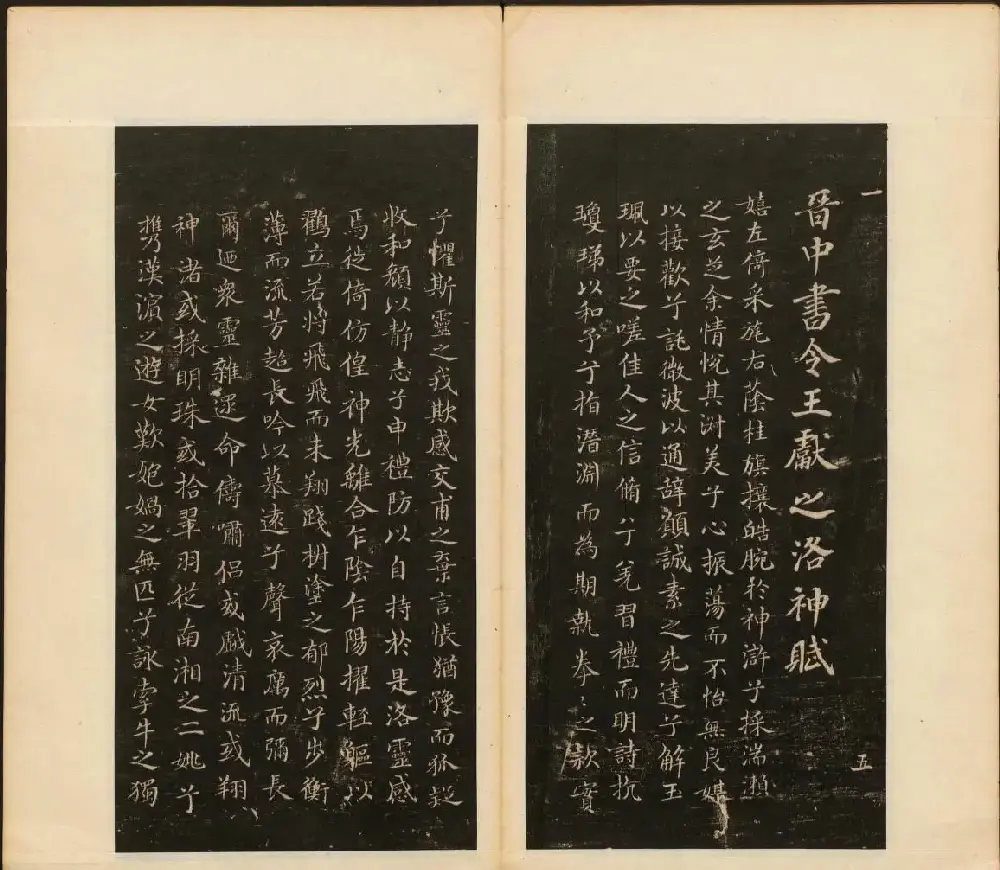 一
五
晉中書令王獻之洛神賦
嬉左倚采旄右蔭桂旗攘皓腕於神滸兮採湍瀨
之玄芝余情悅其淑美兮心振蕩而不怡無良媒
以接歡兮託微波以通辭願誠素之先達兮解玉
珮以要之嗟佳人之信脩兮羌習禮而明詩抗
瓊珶以和予兮指潛淵而為期執拳〻之款實
兮懼斯靈之我欺感交甫之棄言悵猶豫而狐疑
收和顏以靜志兮申禮防以自持於是洛靈感
焉徙倚仿偟神光離合乍陰乍陽擢輕軀以
鶴立若將飛飛而未翔踐椒塗之郁烈兮步衡
薄而流芳超長吟以慕遠兮聲哀厲而彌長
爾迺眾靈雜遝命儔嘯侶或戲清流或翔
神渚或採明珠或拾翠羽從南湘之二姚兮
攜漢濱之遊女歎匏媧之無匹兮詠牽牛之獨